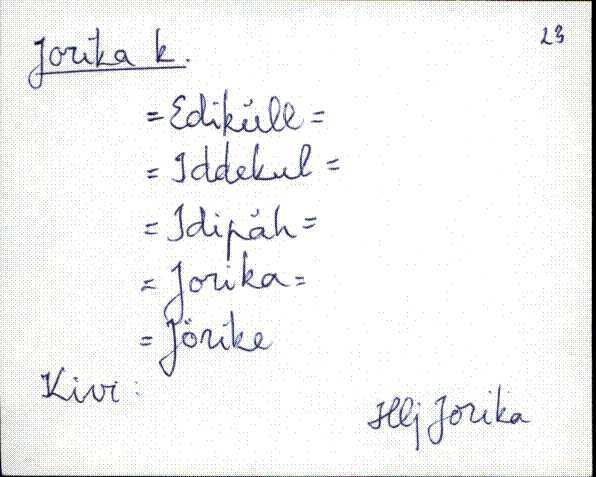 23
Jorika k.
= Ediküll =
= Iddekul =
= Idipäh =
= Jorika =
= Jörike
Kivi:
Hlj Jorika